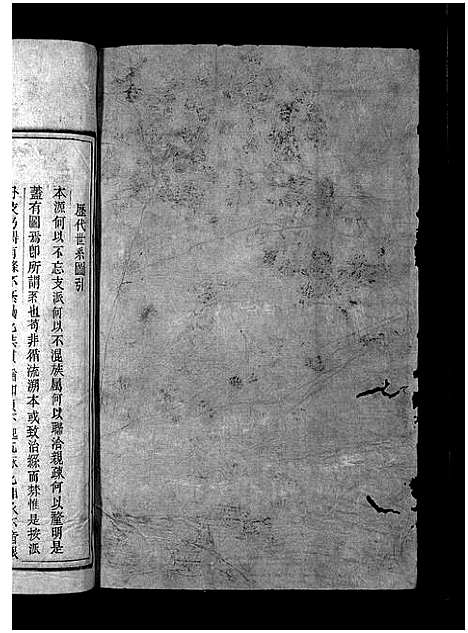 歷代世系圖引
本源何以不忘支派何以不混族属何以聯洽親疎何以釐明是
蓋有圖焉卽所謂系也苟非循流溯本或致治絲而棼惟是按派